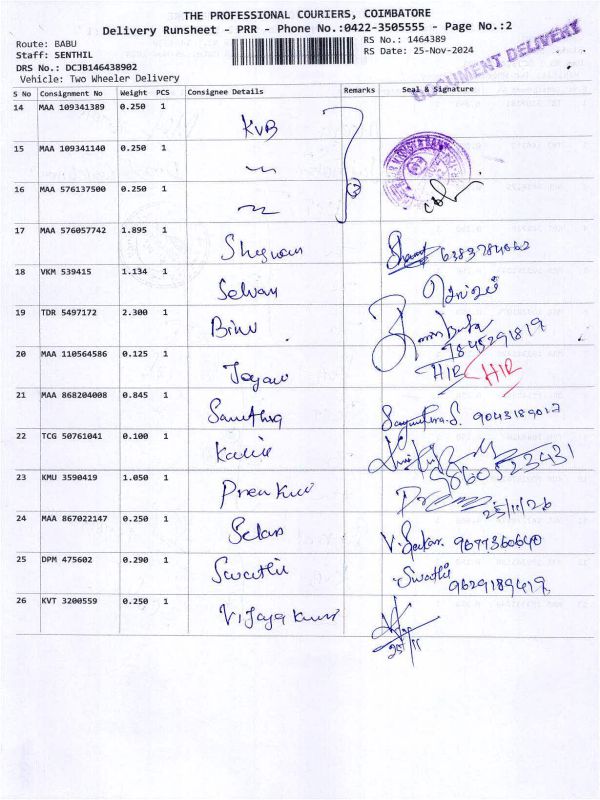 THE PROFESSIONAL COURIERS, COIMBATORE
Delivery Runsheet - PRR - Phone No.:0422-3505555 - Page No.:2
Route: BABU
Staff: SENTHIL
DRS No.: DCJB146438902
Vehicle: Two Wheeler Delivery
RS No.: 1464389
RS Date: 25-Nov-2024
DOCUMENT DELIVERY
S No Consignment No Weight PCS Consignee Details Remarks Seal & Signature
14 MAA 109341389 0.250 1 KVB
15 MAA 109341140 0.250 1
16 MAA 576137500 0.250 1
17 MAA 576057742 1.895 1 6383784662
18 VKM 539415 1.134 1 Selvam
19 TDR 5497172 2.300 1 Binu 9845291819
20 MAA 110564586 0.125 1 HIR HIR
21 MAA 868204008 0.845 1 9043189017
22 TCG 50761041 0.100 1 9860523431
23 KMU 3590419 1.050 1
24 MAA 867022147 0.250 1 9677360640
25 DPM 475602 0.290 1 Swathi Swathi 9629189419
26 KVT 3200559 0.250 1 Vijaya kumar 25/11